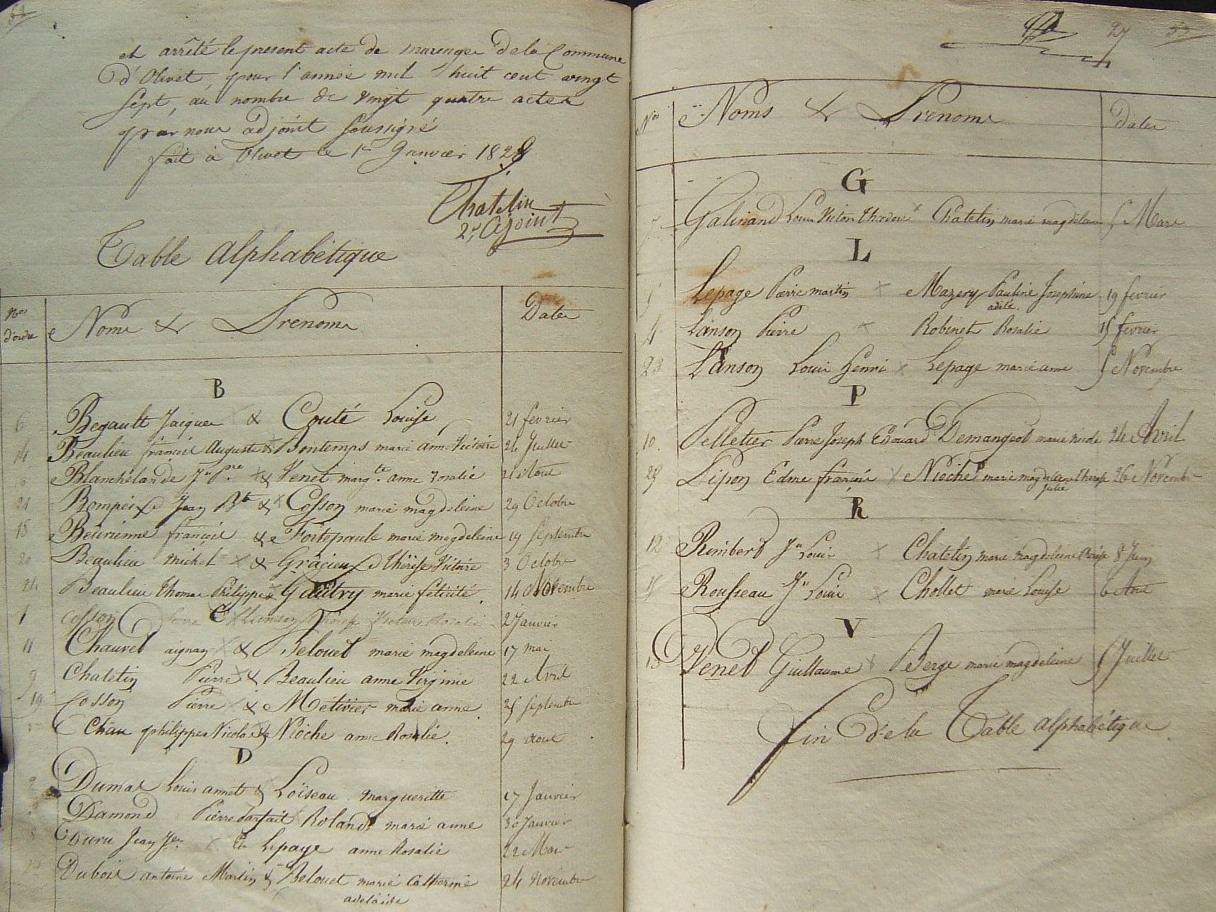 et arrêté le present acte de mariage de la Commune
d'Olivet pour l'année mil huit cent vingt
Sept, au nombre de vingt quatre actes
par nous adjoint Soussigné
fait à Olivet le 1er Janvier 1828
Chatelin
2e Ajoint
Table Alphabétique
Nos d'ordre Noms & Prenoms Dates
B
6 Begault Jacques & Couté Louise 21 fevrier
14 Beaulieu françois Auguste & Bontemps marie anne Victoire 24 Juillet
Blanchelande & Venet margte anne rosalie 21 Aout
21 Jean Bte & Cosson marie magdeleine 29 Octobre
18 françois & Fortepaule marie magdeleine 19 Septembre
20 Beaulieu michel & Gracieux Thérèse Victoire 3 Octobre
Beaulieu thomas Philippe & Gautry marie félicité 14 Novembre
1 Cosson 2 Janvier
11 Chauvet aignan & Belouet marie magdeleine 17 mai
9 Chatelin Pierre & Beaulieu anne Virginie 22 Avril
19 Cosson Pierre & Métivier marie anne 25 Septembre
Chau philippe Nicolas & Nioche anne Rosalie 29 Aout
D
2 Dumas Louis annet & Loiseau margueritte 17 Janvier
Damond Pierre parfait Roland marie anne 30 Janvier
8 Duru Jean & Lepage anne Rosalie 22 Mars
22 Dubois antoine Martin & Belouet marie Catherine 24 novembre
adelaïde
27
Nos Noms & Prenoms Dates
G
7 Galinand Louis Chatelin marie magdeleine 5 Mars
L
5 Lepage Pierre martin Mazery Pauline Josephine 19 fevrier
adele
4 Lanson Pierre Robinet Rosalie 15 fevrier
23 Lanson Louis henri Lepage marie anne 5 Novembre
P
10 Pelletier Pierre Joseph Edouard Demangeot marie 24 Avril
Edme françois Nioche marie magdeleine therese 26 Novembre
Julie
R
12 Rembert Jn Louis Chatelin marie magdeleine 8 Juin
15 Rousseau Jn Louis Chollet marie Louise 6 Aout
V
13 Venet Guillaume Berge marie magdeleine 5 Juillet
fin de la Table alphabétique